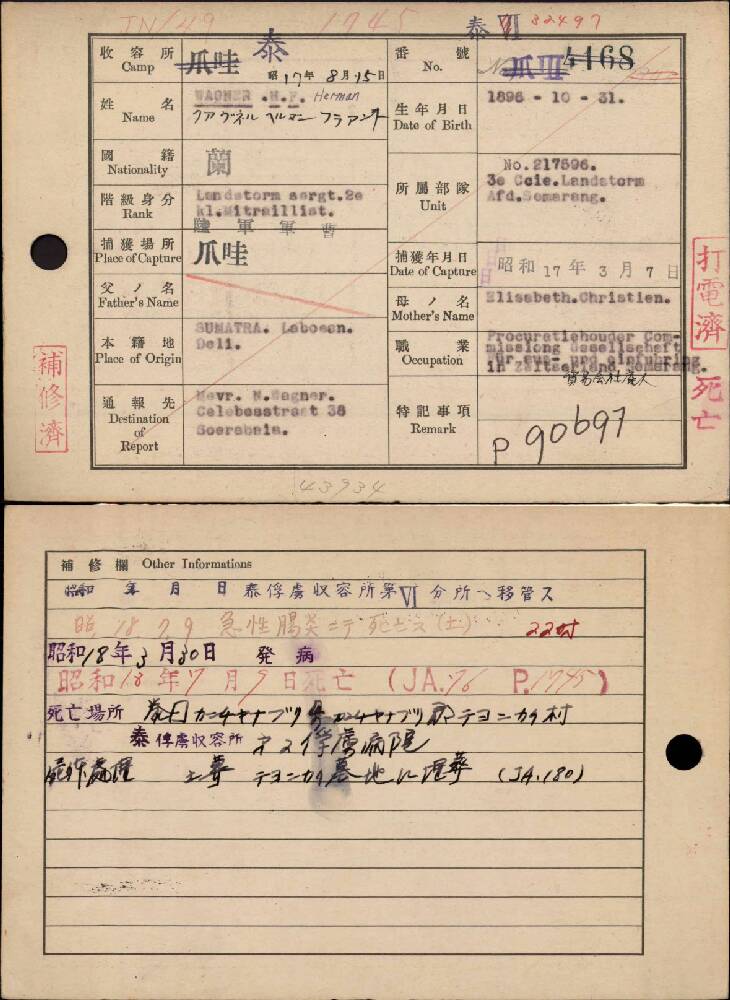 JN/49 1745 泰VI 82497
收容所 Camp 爪哇 泰 昭17年8月15日
番號 No. 爪III 4168
姓名 Name WAGNER .H.F. Herman
ワアグネル ヘルマン フラアンツ
生年月日 Date of Birth 1896 - 10 - 31.
國籍 Nationality 蘭
所屬部隊 Unit No. 217596.
3e Ccie.Landstorm
Afd.Semarang.
階級身分 Rank Landstorm sergt.2e
kl.Mitraillist.
陸軍
捕獲場所 Place of Capture 爪哇
捕獲年月日 Date of Capture 昭和 17 年 3 月 7 日
父ノ名 Father's Name
母ノ名 Mother's Name Elisabeth.Christien.
本籍地 Place of Origin SUMATRA. Laboean.
Deli.
職業 Occupation Procuratiehouder Com-
missiong Gesellschaft
für aus- und einfuhring
in Zaitserland.Semarang.
貿易会社
通報先 Destination of Report Mevr. N.Wagner.
Celebesstraat 38
Soerabaia.
特記事項 Remark P 90697
補修濟
打電濟
死亡
43934
補修欄 Other Informations
昭和 年 月 日 泰俘虜収容所第VI分所ヘ移管ス
昭 18.7.9 急性腸炎ニテ死亡ス(土) 22時
昭和18年3月30日 発病
昭和18年7月9日死亡 (JA.76 P.1745)
死亡場所 泰国カンチヤナブリ県カンチヤナブリ郡テヨンカイ村
泰俘虜収容所 オ2俘虜病院
屍体處理 土葬 テヨンカイ墓地ニ埋葬 (JA.180)